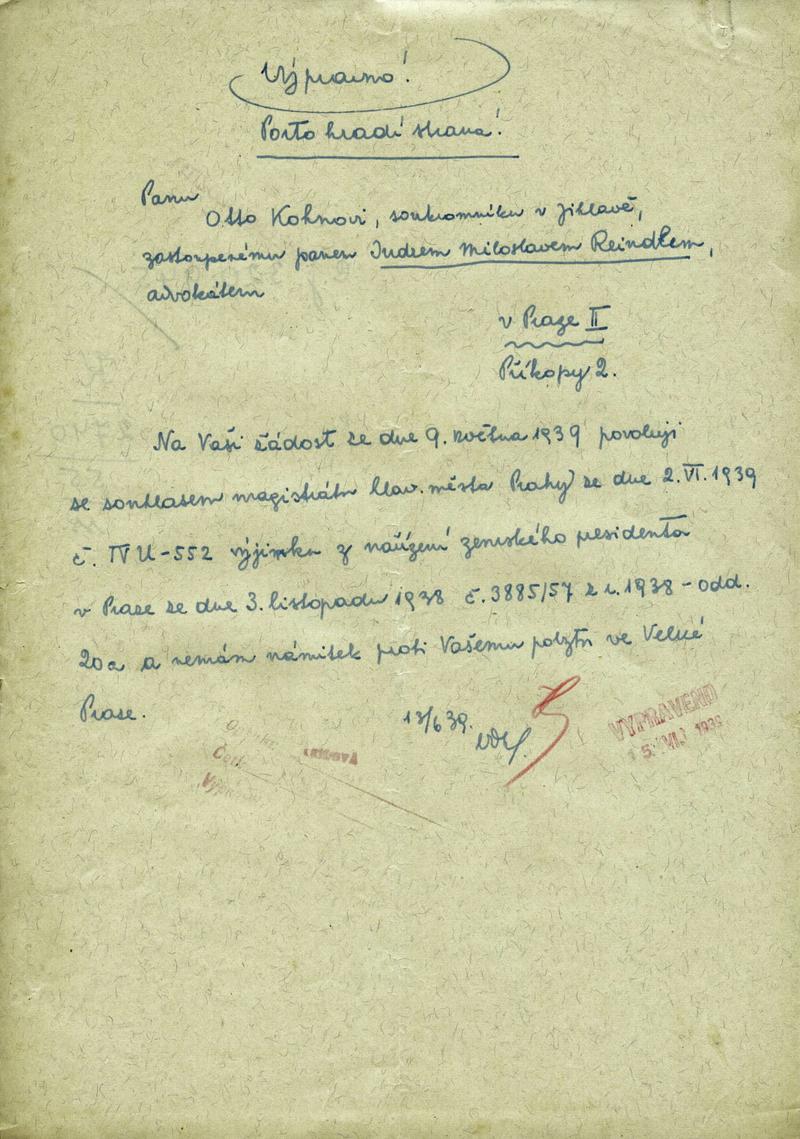 Výplatno!
Porto hradí strana!
Panu
Otto Kohnovi, soukromníku v Jihlavě,
zastoupenému panem Judrem Miloslavem Reindlem,
advokátem
v Praze II
Příkopy 2.
Na Vaši žádost ze dne 9. května 1939 povoluji
se souhlasem magistrátu hlav. města Prahy ze dne 2.VI.1939
č. IV U-552 výjimku z nařízení zemského presidenta
v Praze ze dne 3. listopadu 1938 č. 3885/57 z r. 1938 - odd.
20a a nemám námitek proti Vašemu pobytu ve Velké
Praze.
13/6 39.
VYPRAVENO
15. VI. 1939